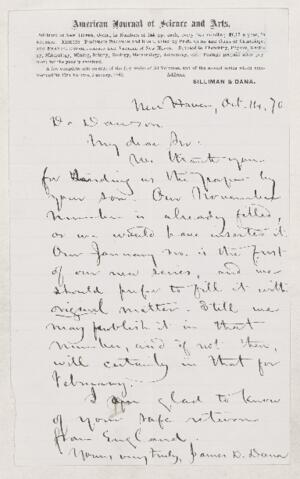 American Journal of Science and Arts.
SILLIMAN & DANA.
New Haven, Oct. 14, 70
Dr Dawson.
My dear Sir:
We thank you
for sending us the paper by
your son. Our November
number is already filled,
or we would have inserted it.
Our January no. is the first
of our new series, and we
should prefer to fill it with
original matter. Still we
may publish it in that
number, and if not then,
will certainly in that for
February.
I am glad to know
of your safe return
from England.
Yours very truly, James D. Dana